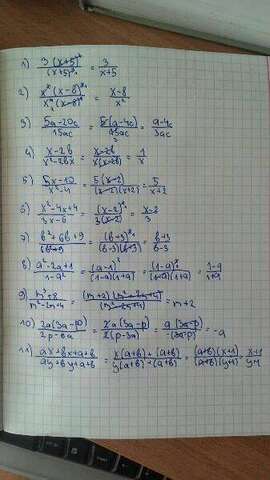 1) 3(x+5)² / (x+5)³ = 3 / x+5
2) x²(x-8)³ / x⁴(x-8)² = x-8 / x²
3) 5a-20c / 15ac = 5(a-4c) / 15ac = a-4c / 3ac
4) x-2b / x²-2bx = x-2b / x(x-2b) = 1 / x
5) 5x-10 / x²-4 = 5(x-2) / (x-2)(x+2) = 5 / x+2
6) x²-4x+4 / 3x-6 = (x-2)² / 3(x-2) = x-2 / 3
7) b²+6b+9 / = (b+3)² / (b-3)(b+3) = b+3 / b-3
8) a²-2a+1 / 1-a² = (a-1)² / (1-a)(1+a) = (1-a)² / (1-a)(1+a) = 1-a / 1+a
9) m³+8 / m²-2m+4 = (m+2)(m²-2m+4) / (m²-2m+4) = m+2
10) 2a(3a-p) / 2p-6a = 2a(3a-p) / 2(p-3a) = a(3a-p) / -(3a-p) = -a
11) ax+bx+a+b / ay+by+a+b = x(a+b)+(a+b) / y(a+b)+(a+b) = (a+b)(x+1) / (a+b)(y+1) = x+1 / y+1